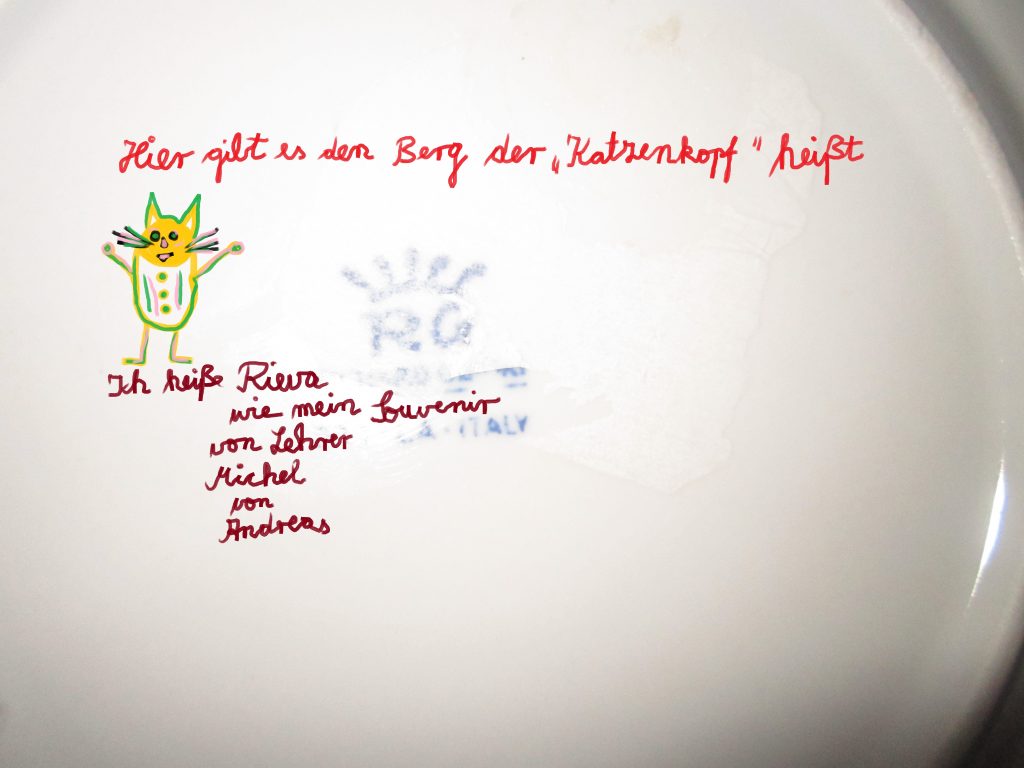 Hier gibt es den Berg der „Katzenkopf" heißt
RG
Ich heiße Rieva
wie mein Souvenir
ITALY
von Lehrer
Michel
von
Andreas